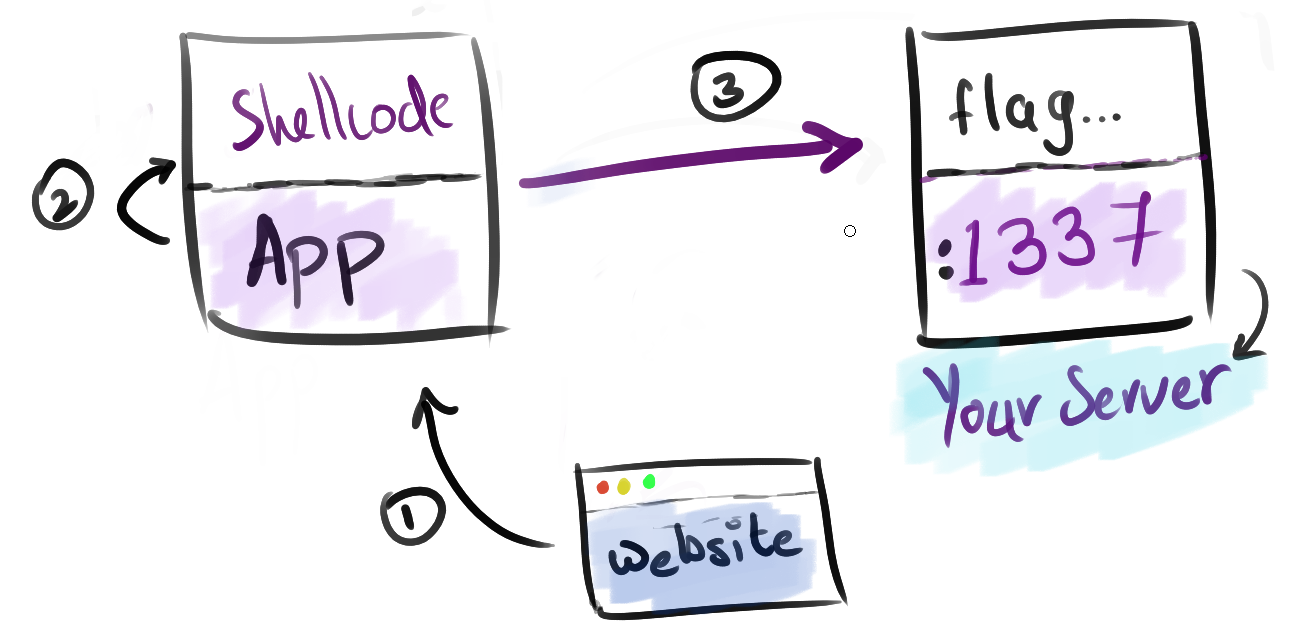 Shellcode
App
2
3
flag...
:1337
Your Server
1
website